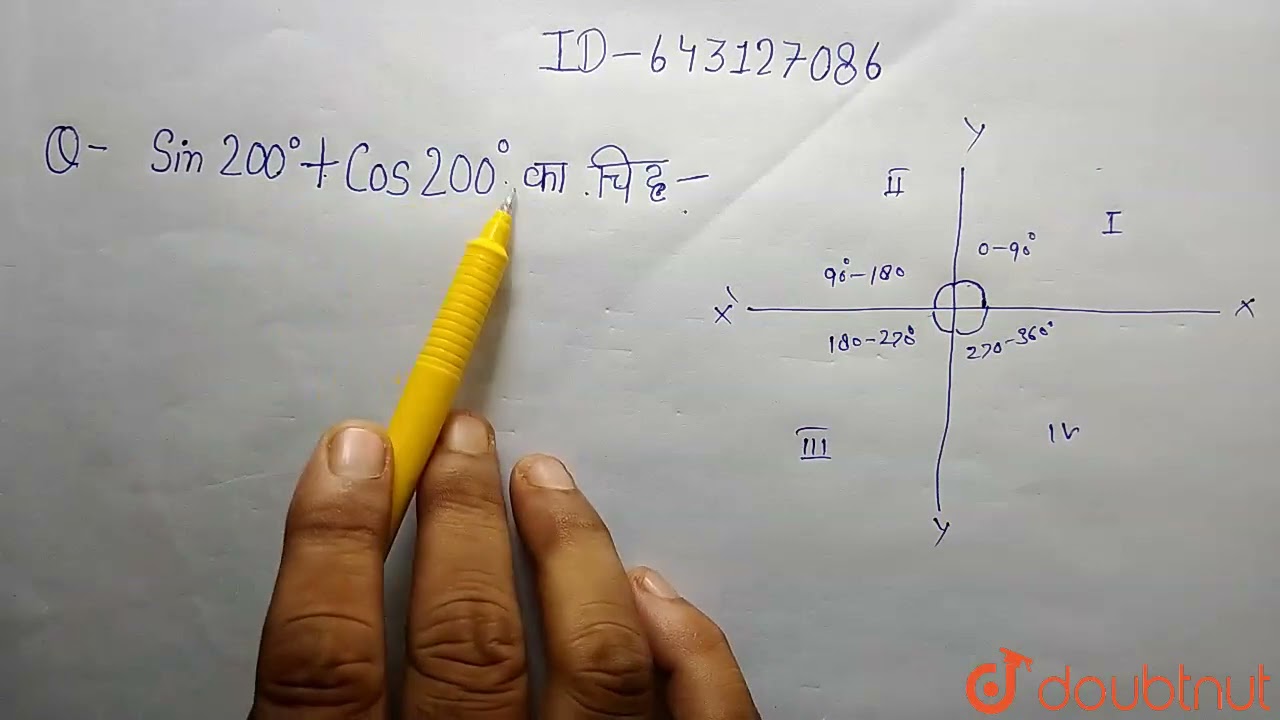 ID-643127086
Q- Sin 200° + Cos 200° का चिह्न -
Y
II
I
0-90°
90°-180
X'
X
180-270°
270-360°
III
IV
Y
doubtnut